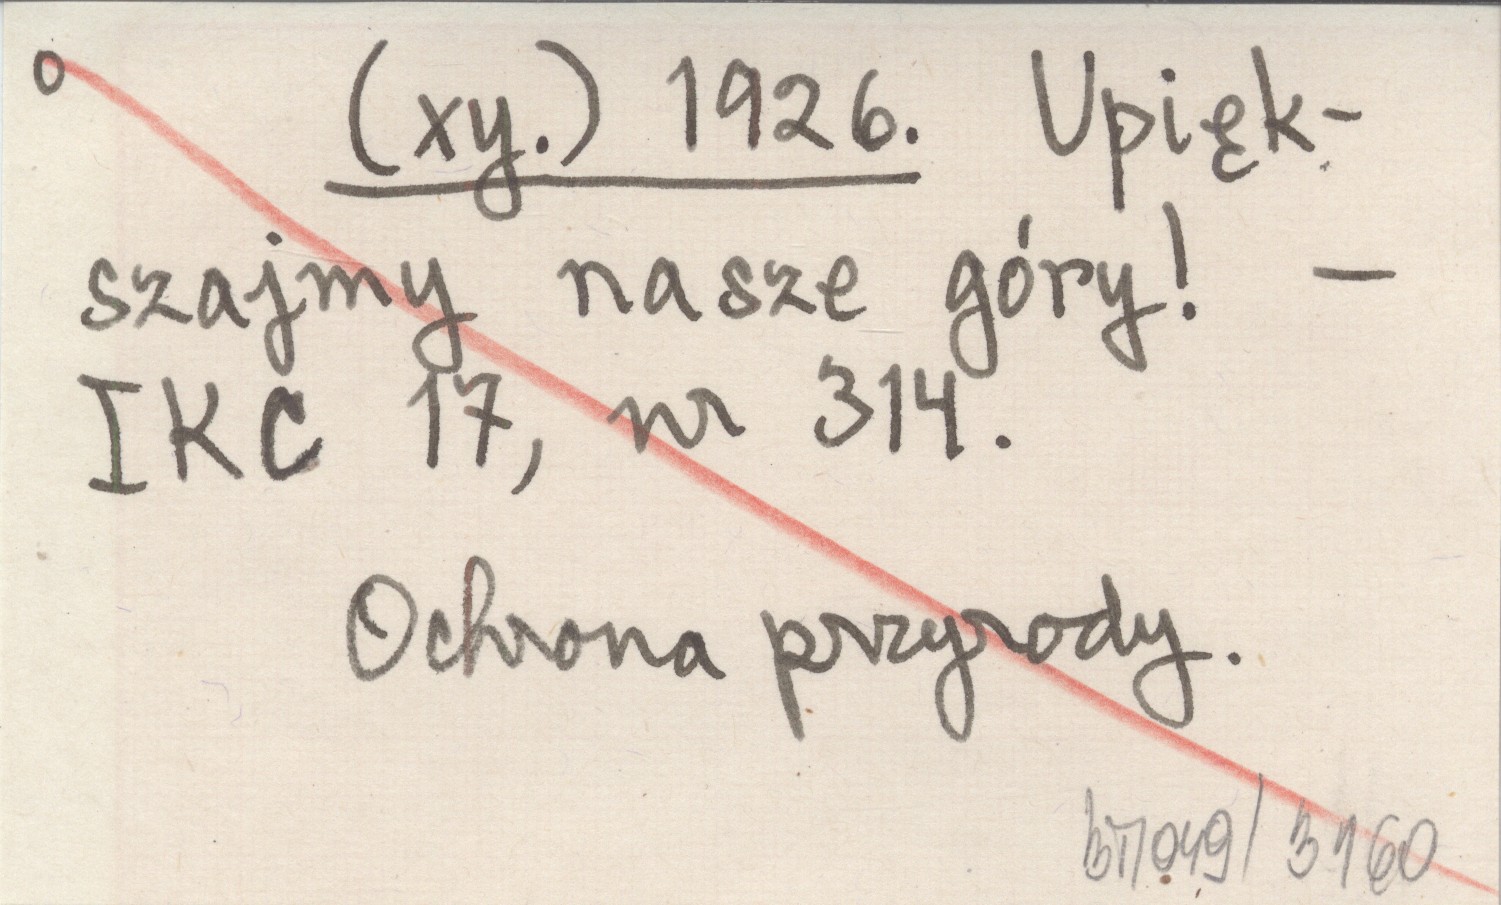 o (xy.) 1926. Upięk-
szajmy nasze góry! —
IKC 17, nr 314.
Ochrona przyrody.
3160